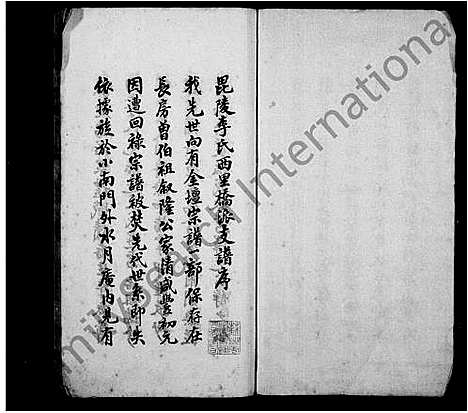 毘陵李氏西里橋派支譜序
我先世向有金壇宗譜一部保存在
長房曾伯祖叙隆公家清咸豐初元
因遭回祿宗譜被焚先代世系即失
依據旋於小南門外水月廣内見有
FamilySearch International